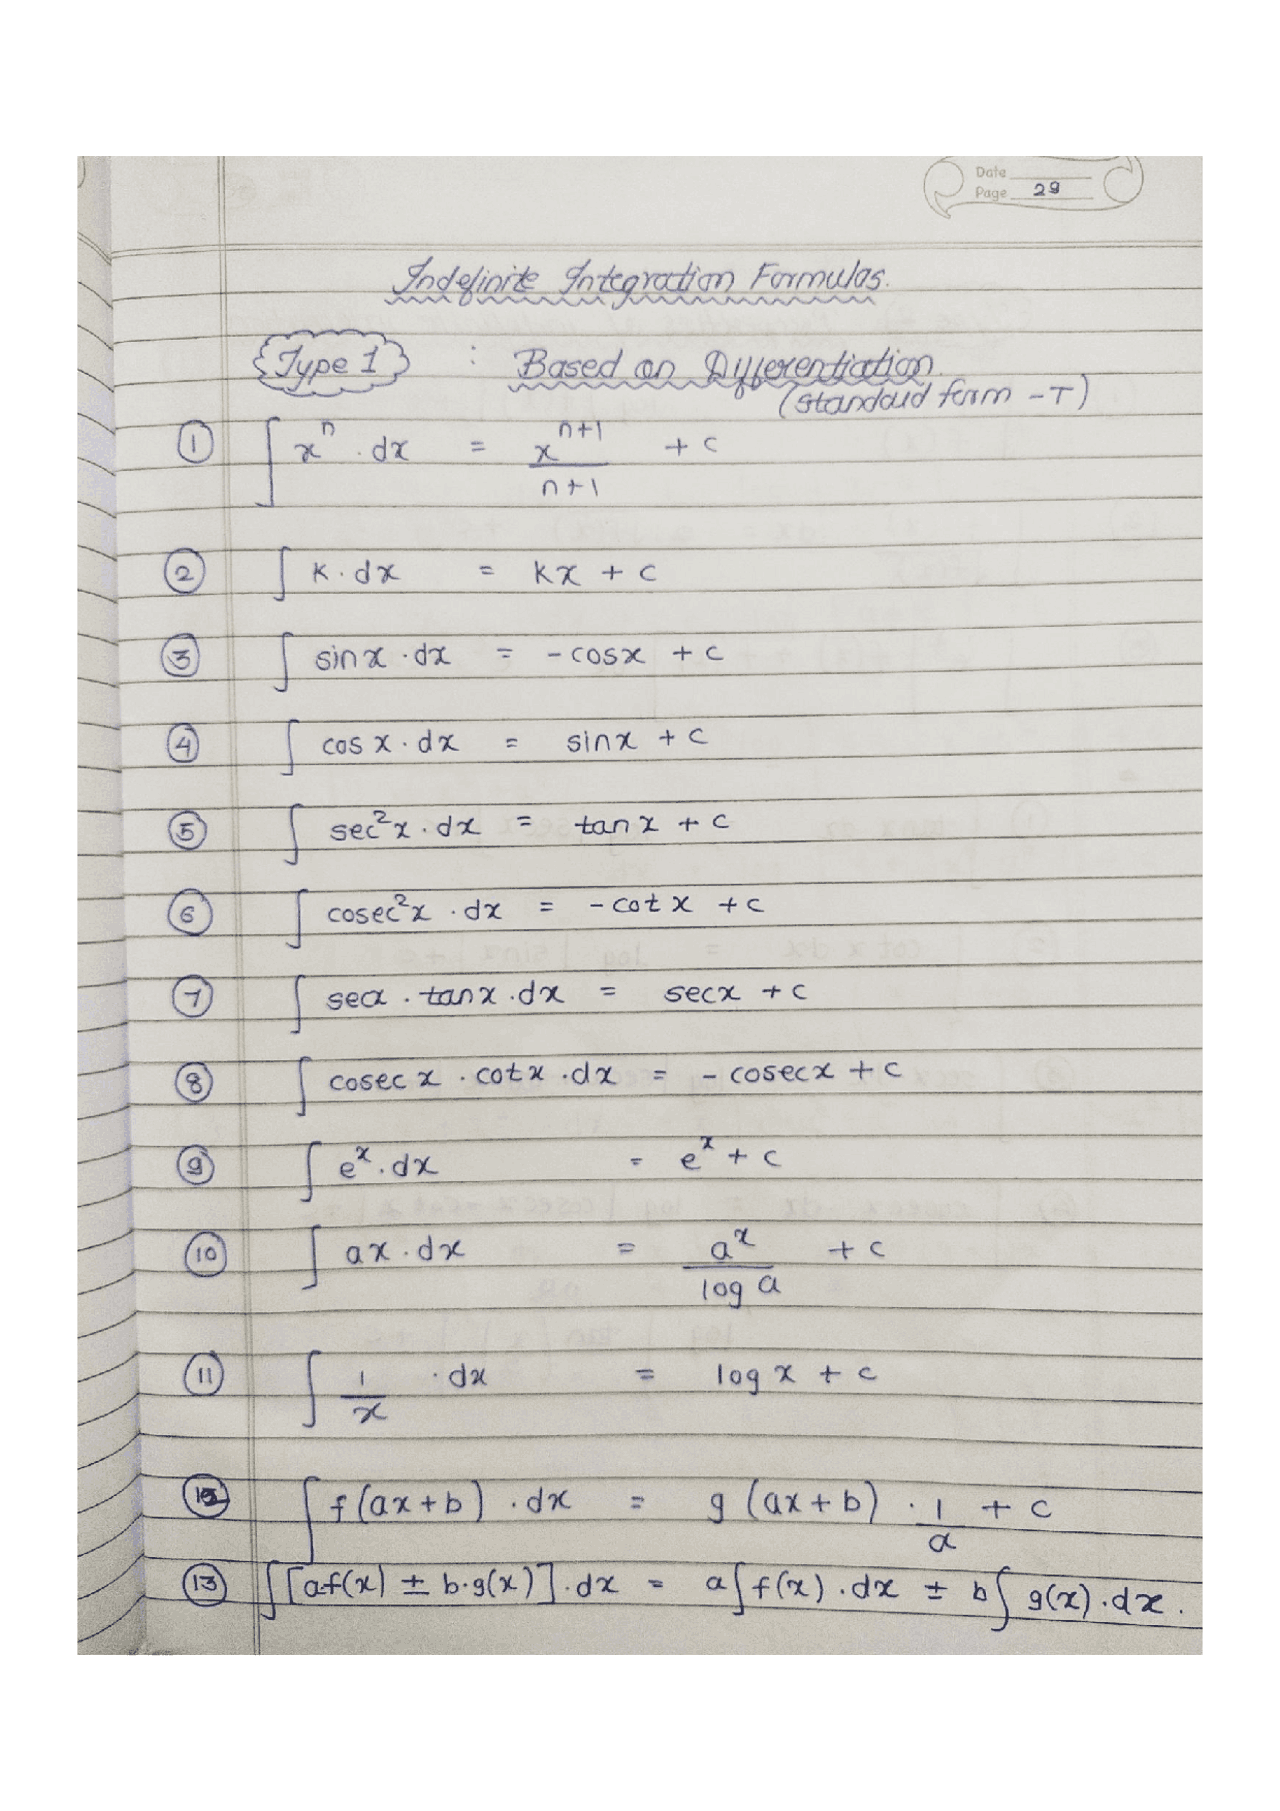 Date
Page 29
Indefinite Integration Formulas.
Type 1 : Based on Differentiation.
(standard form - T)
① ∫ xⁿ . dx = xⁿ⁺¹/n+1 + c
② ∫ K . dx = Kx + c
③ ∫ sinx . dx = - cosx + c
④ ∫ cos x . dx = sinx + c
⑤ ∫ sec²x . dx = tanx + c
⑥ ∫ cosec²x . dx = - cotx + c
⑦ ∫ secx . tanx . dx = secx + c
⑧ ∫ cosec x . cotx . dx = - cosecx + c
⑨ ∫ eˣ . dx = eˣ + c
⑩ ∫ ax . dx = aˣ/log a + c
⑪ ∫ 1/x . dx = log x + c
⑫ ∫ f(ax+b) . dx = g(ax+b) . 1/a + c
⑬ ∫[a.f(x) ± b.g(x)] . dx = a∫f(x) . dx ± b∫g(x) . dx .